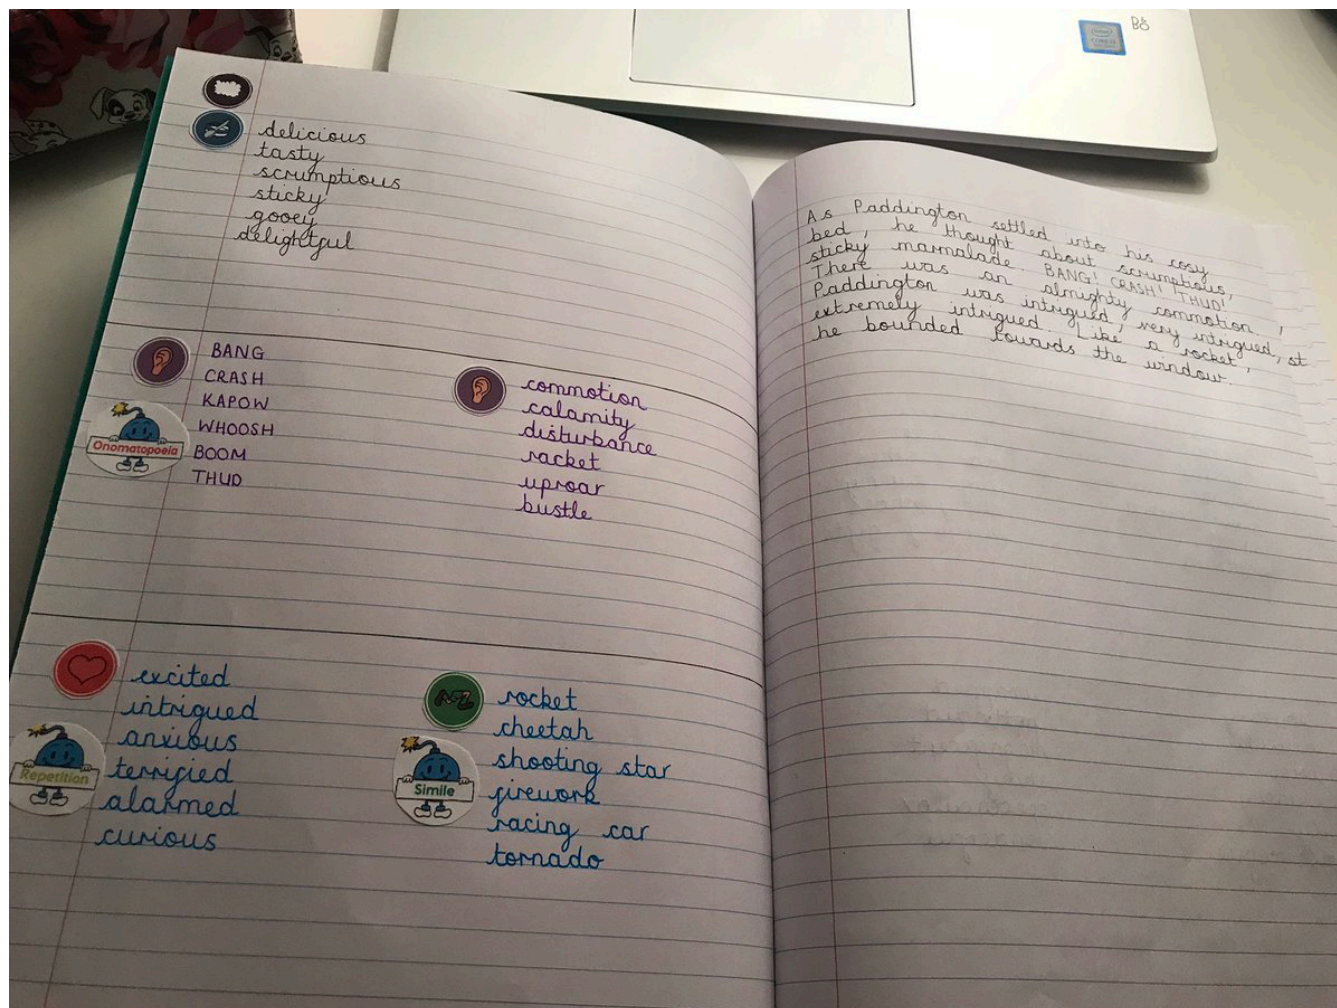 delicious
tasty
scrumptious
sticky
gooey
delightful
BANG
CRASH
KAPOW
WHOOSH
BOOM
THUD
Onomatopoeia
commotion
calamity
disturbance
racket
uproar
bustle
excited
intrigued
anxious
terrified
alarmed
curious
Repetition
rocket
cheetah
shooting star
firework
racing car
tornado
Simile
As Paddington settled into his cosy
bed, he thought about scrumptious,
sticky marmalade. BANG! CRASH! THUD!
There was an almighty commotion,
Paddington was intrigued, very intrigued, st
extremely intrigued. Like a rocket,
he bounded towards the window